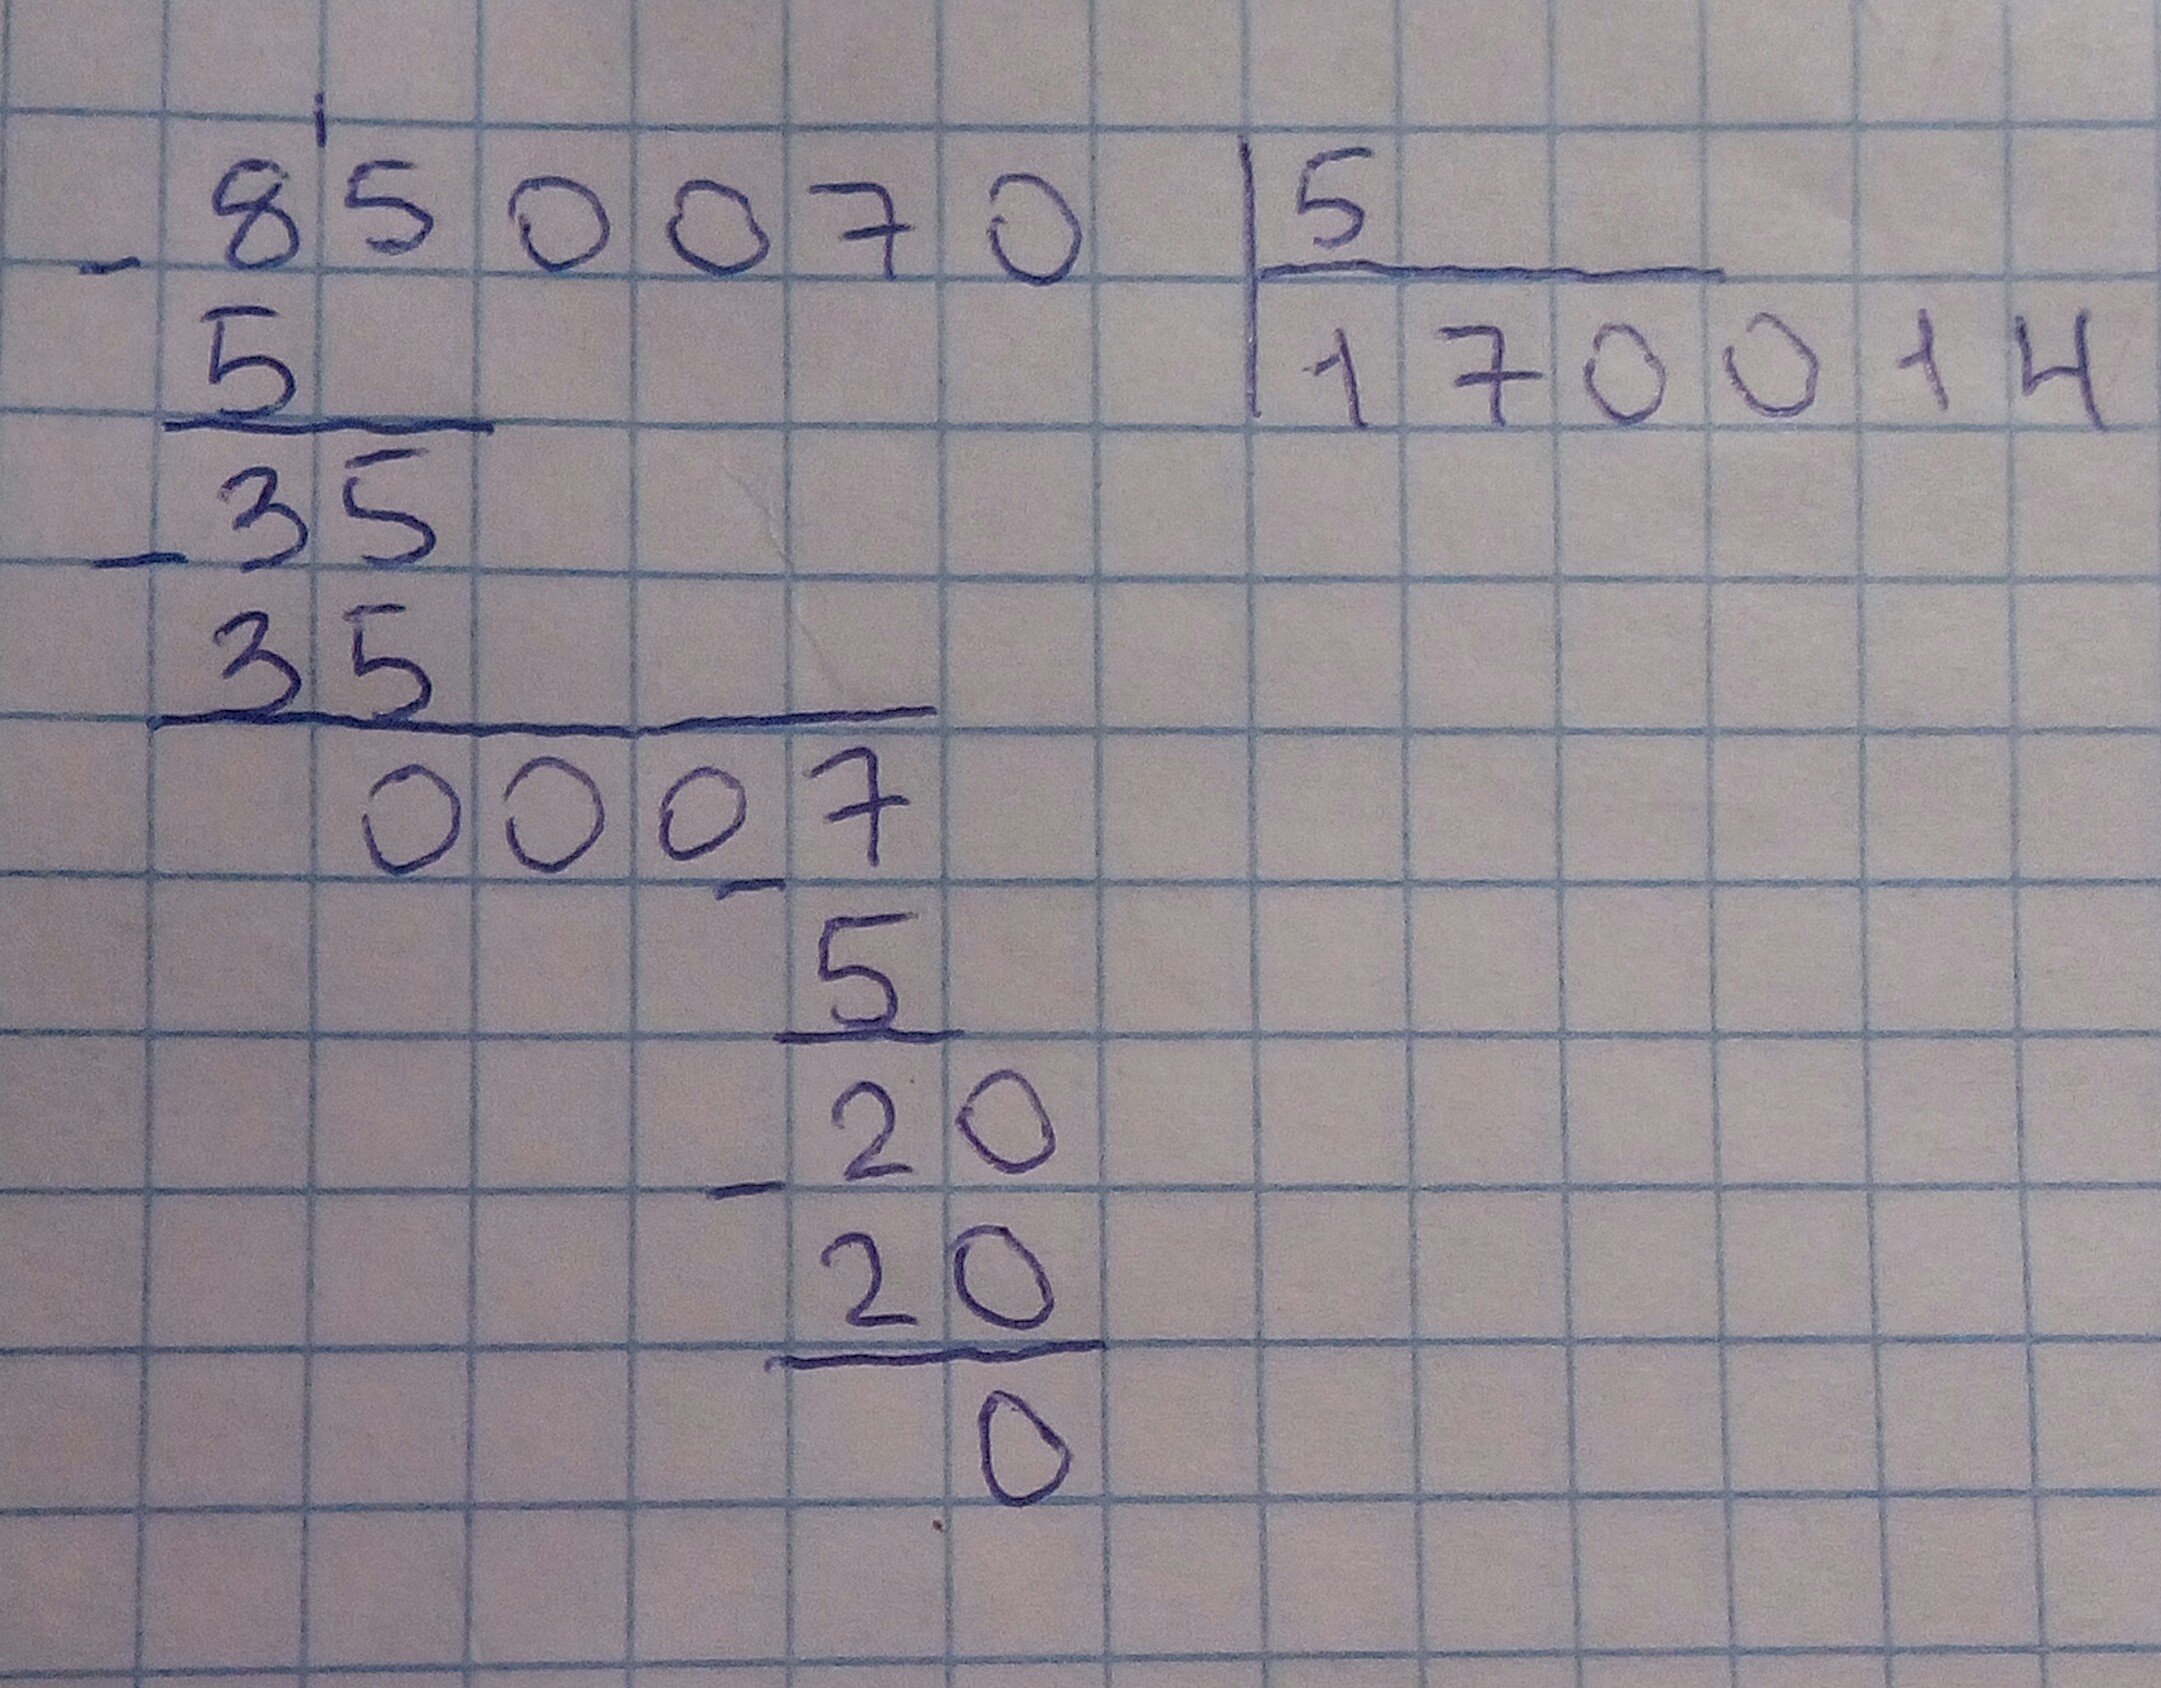 - 850070 | 5
5 170014
35
- 35
0007
- 5
20
- 20
0